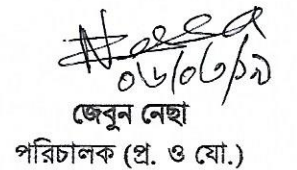 ০৬/০৩/১৯
জেবুন নেছা
পরিচালক (প্র. ও যো.)